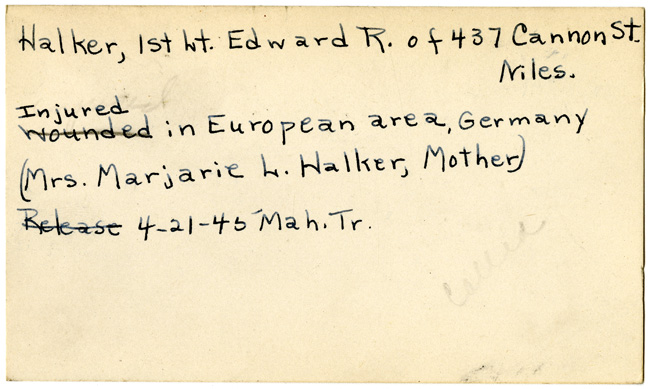 Halker, 1st Lt. Edward R. of 437 Cannon St.
Niles.
Injured
Wounded in European area, Germany
(Mrs. Marjarie L. Halker, Mother)
Release 4-21-45 Mah. Tr.